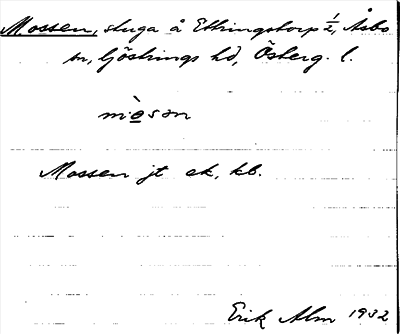 Mossen, stuga å Ettringstorp 1/2, Åsbo
sn, Göstrings hd, Österg. l.
mòsən
Mossen jt ek, kb.
Erik Alm 1932